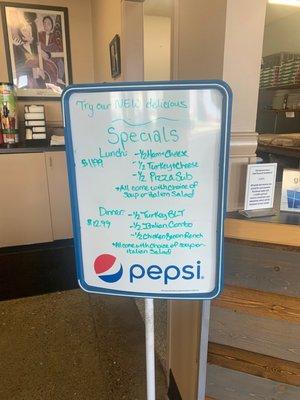 Try our NEW delicious
Specials
Lunch: - ½ Ham + Cheese
$11.99 - ½ Turkey + Cheese
- ½ Pizza Sub
*All come with choice of
soup or italian Salad
Dinner: - ½ Turkey BLT
$12.99 - ½ Italian Combo
- ½ Chicken Bacon Ranch
*All come with choice of soup or
italian Salad
pepsi